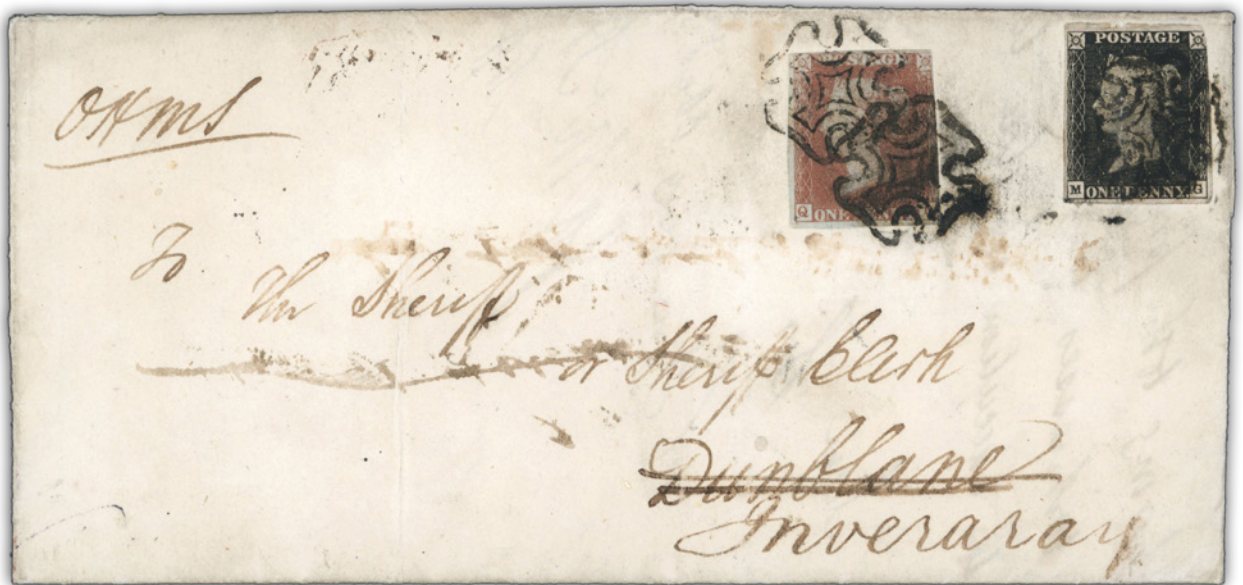 OHMS
POSTAGE
ONE PENNY
M G
Q ONE
To
The Sheriff
or Sheriff Clerk
Dunblane
Inveraray